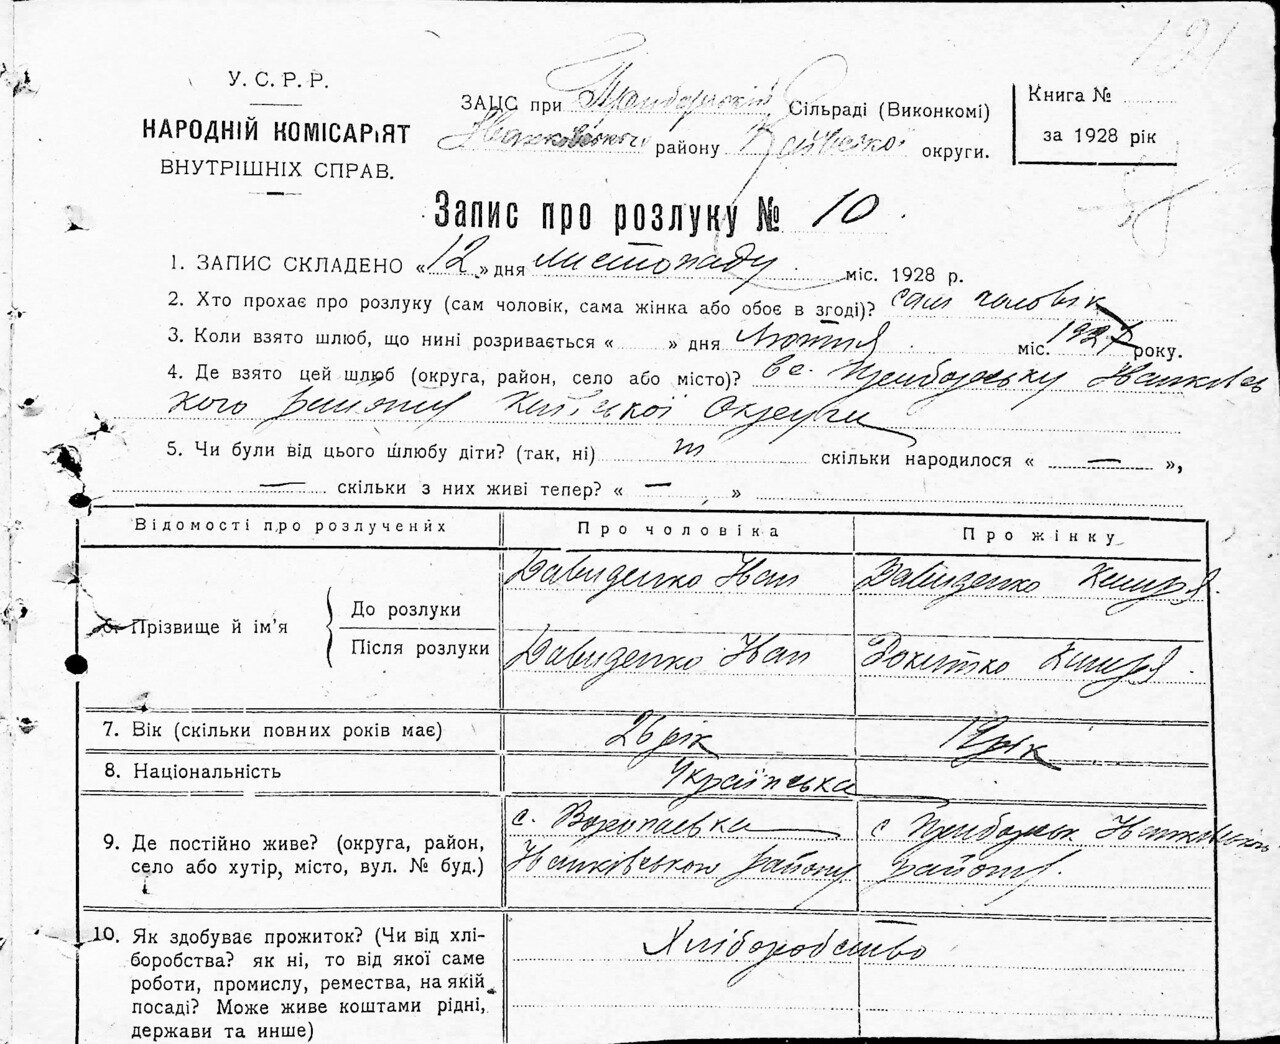 191
У. С. Р. Р.
НАРОДНІЙ КОМІСАРІЯТ
ВНУТРІШНІХ СПРАВ.
ЗАЦС при Приборській Сільраді (Виконкомі)
Іванковського району Київської округи.
Книга №
за 1928 рік
Запис про розлуку № 10.
1. ЗАПИС СКЛАДЕНО «12» дня листопаду міс. 1928 р.
2. Хто прохає про розлуку (сам чоловік, сама жінка або обоє в згоді)? сам чоловік
3. Коли взято шлюб, що нині розривається « » дня лютня міс. 1927 року.
4. Де взято цей шлюб (округа, район, село або місто)? в с. Приборську Іванковсь
кого району Київської Округи
5. Чи були від цього шлюбу діти? (так, ні) ні скільки народилося « — »,
— скільки з них живі тепер? « — »
Відомості про розлучених
Про чоловіка
Про жінку
6. Прізвище й ім'я
До розлуки
Давиденко Іван
Давиденко
Після розлуки
Давиденко Іван
7. Вік (скільки повних років має)
26 рік
19 рік
8. Національність
Українська
9. Де постійно живе? (округа, район,
село або хутір, місто, вул. № буд.)
с. Воропаевка
Іванківського району
с Приборськ Іванковського
району.
10. Як здобуває прожиток? (Чи від хлі-
боробства? як ні, то від якої саме
роботи, промислу, ремества, на якій
посаді? Може живе коштами рідні,
держави та инше)
Хліборобство